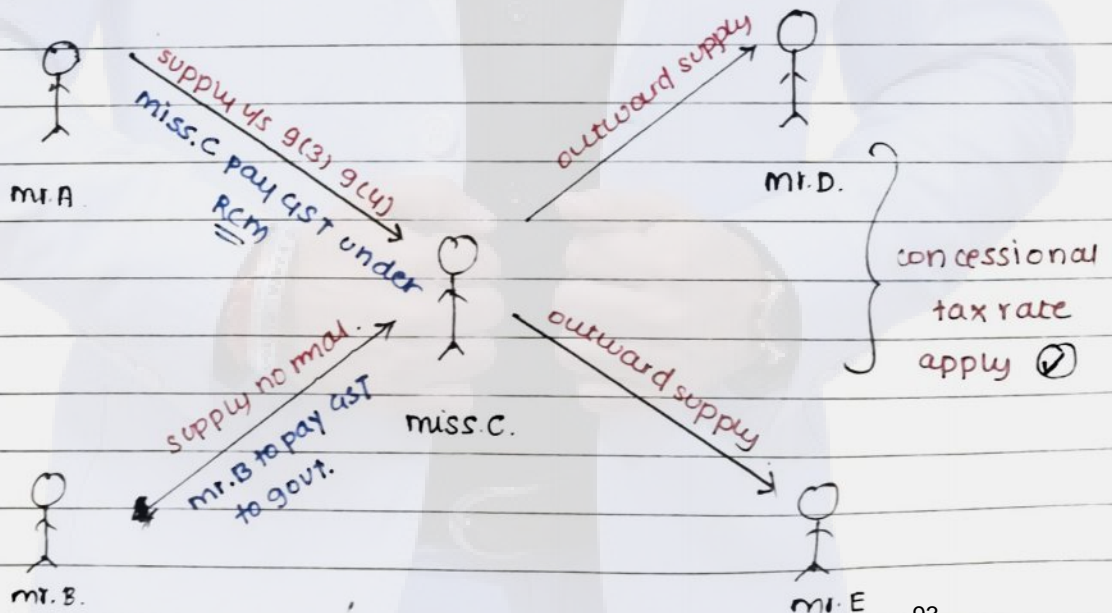 supply u/s 9(3) 9(4)
miss.C pay GST under
RCM
mr.A
outward supply
mr.D.
concessional
tax rate
apply
supply normal.
mr.B to pay GST
to govt.
miss.C.
outward supply
mr.B.
mr.E
93